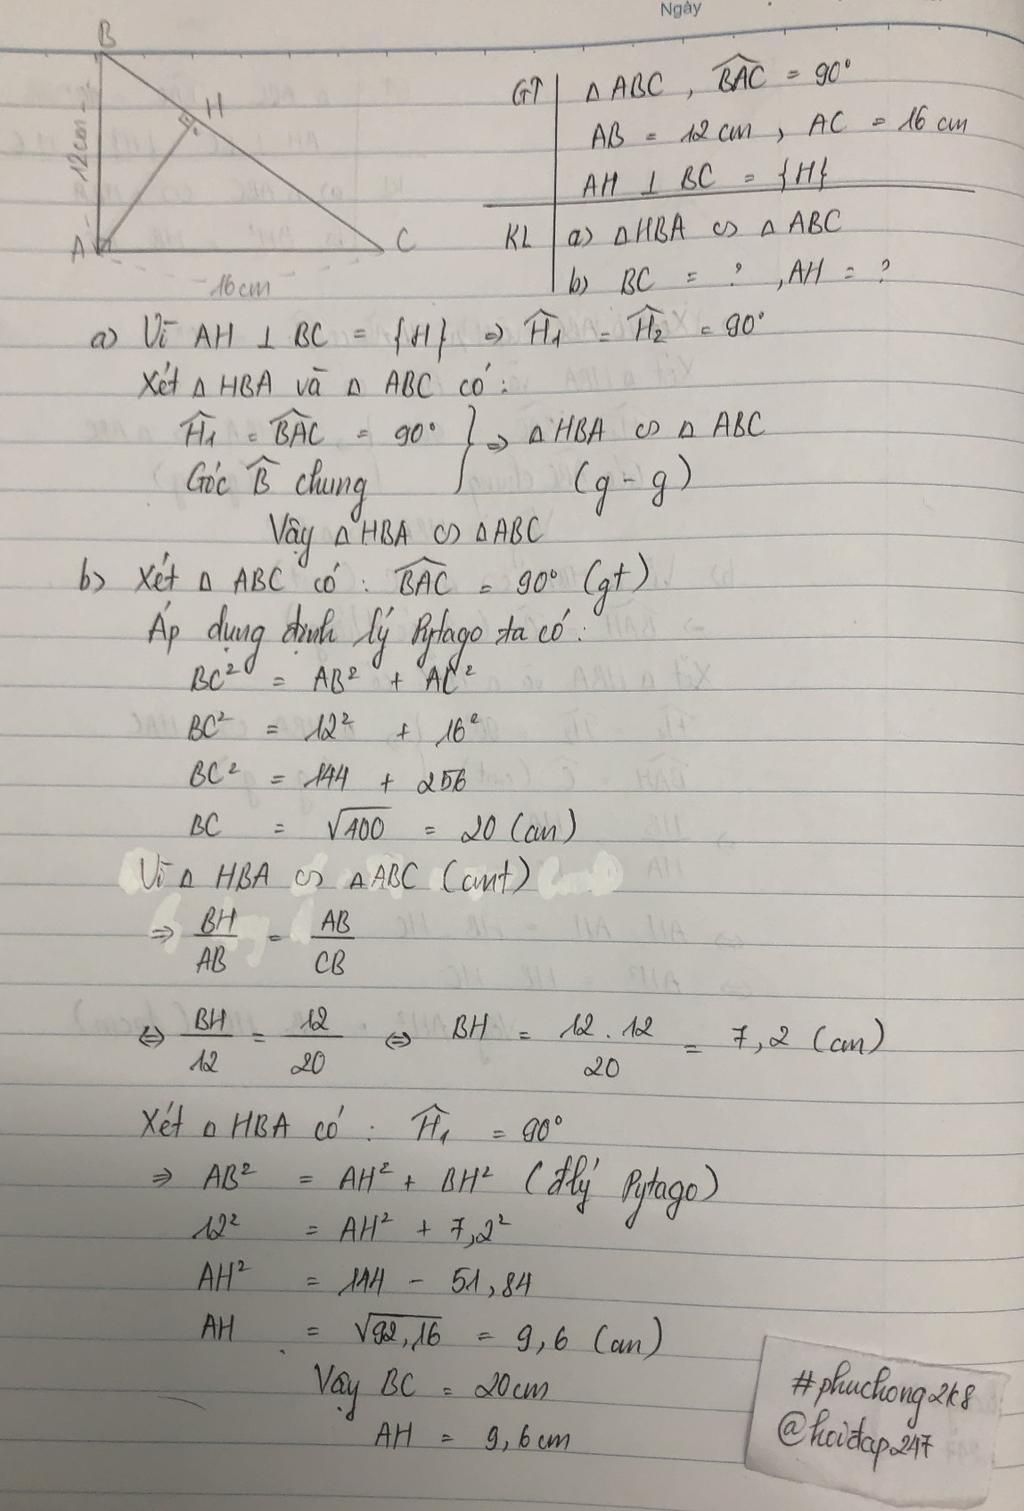 Ngày
B
H
12cm
A
C
16cm
GT | △ ABC, \widehat{BAC} = 90°
AB = 12 cm, AC = 16 cm
AH ⊥ BC = {H}
KL | a) △HBA ∽ △ABC
b) BC = ?, AH = ?
a) Vì AH ⊥ BC = {H} ⇒ Ĥ₁ = Ĥ₂ = 90°
Xét △ HBA và △ ABC có:
Ĥ₁ = \widehat{BAC} = 90° } ⇒ △ HBA ∽ △ ABC
Góc B̂ chung (g - g)
Vậy △HBA ∽ △ABC
b) Xét △ ABC có: \widehat{BAC} = 90° (gt)
Áp dụng định lý Pytago ta có:
BC² = AB² + AC²
BC² = 12² + 16²
BC² = 144 + 256
BC = √400 = 20 (cm)
Vì △ HBA ∽ △ABC (cmt)
⇒ BH/AB = AB/CB
⇔ BH/12 = 12/20 ⇔ BH = 12 . 12/20 = 7,2 (cm)
Xét △ HBA có: Ĥ₁ = 90°
⇒ AB² = AH² + BH² (đlý Pytago)
12² = AH² + 7,2²
AH² = 144 - 51,84
AH = √92,16 = 9,6 (cm)
Vậy BC = 20cm
AH = 9,6cm
#phuchong2k8
@hoidap247